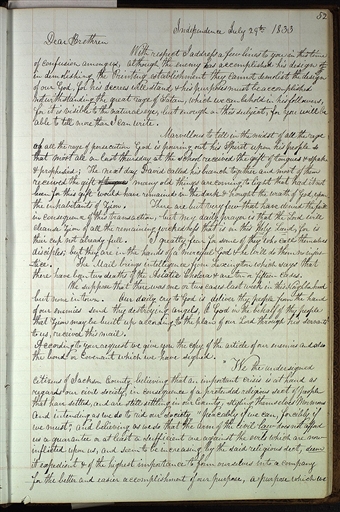 52
Independence July 29th 1833
Dear Brethren
With respect I address a few lines to you in this time
of confusion amongus, although the enemy has accomplished his design
in demolishing the Printing establishment they cannot demolish the design
of our God, for his decree will stand & his purposes must be accomplished
notwithstanding the great rage of Satan, which we can behold in his followers,
for it is visible to the natural eye; but enough on this subject, for you will be
able to tell more than I can write.
Marvellous to tell in the midst of all the rage
of all the rage of persecution God is pouring out his Spirit upon his people so
that most all on last thursday at the school received the gift of tongues & spake
& prophesied; The next day David called his branch together and most of them
received the gift of tongues many old things are coming to light that had it not
been for this gift would have remained in the dark & brought the wrath of God upon
the inhabitants of Zion. There are but very few that have denied the faith
in consequence of this transaction; but my daily prayer is that the Lord will
cleanse Zion of all the remaining wickedness that is on this Holy Land, for is
their cup not already full. I greatly fear for some of they who call themselves
disciples; but they are in the hands of a merciful God & he will do them no injus-
tice. The Mail brings intelligence from Lexington which says that
there have been two deaths of the Asiatic Cholera & are ten or fifteen cases.
We suppose that there was one or two cases last week in this Neighborhood
but none in town. Our daily cry to God is deliver thy people from the hand
of our enemies send thy destroying angels, O God in the behalf of thy people
that Zion may be built up according to the plan of our Lord through his servants
to us, received this mail.
According to your request we give you the copy of the article of our enemies and also
the bonds or covenant which we have signed.
" We the undersigned
citizens of Jackson County, believing that an important crisis is at hand as
regards our civil society, in consequence of a pretended religious sect of people
that have settled, and are still settling in our County, styling themselves Mormons
And intending as we do to rid our Society "peacably if we can, forcibly if
we must," And believing as we do that the arm of the civil law does not afford
us a guarantee or at least a sufficient one against the evils which are now
inflicted upon us, and seem to be increasing by the said religious sect, deem
it expedient & of the highest importance to form ourselves into a company
for the better and easier accomplishment of our purpose, a purpose which we